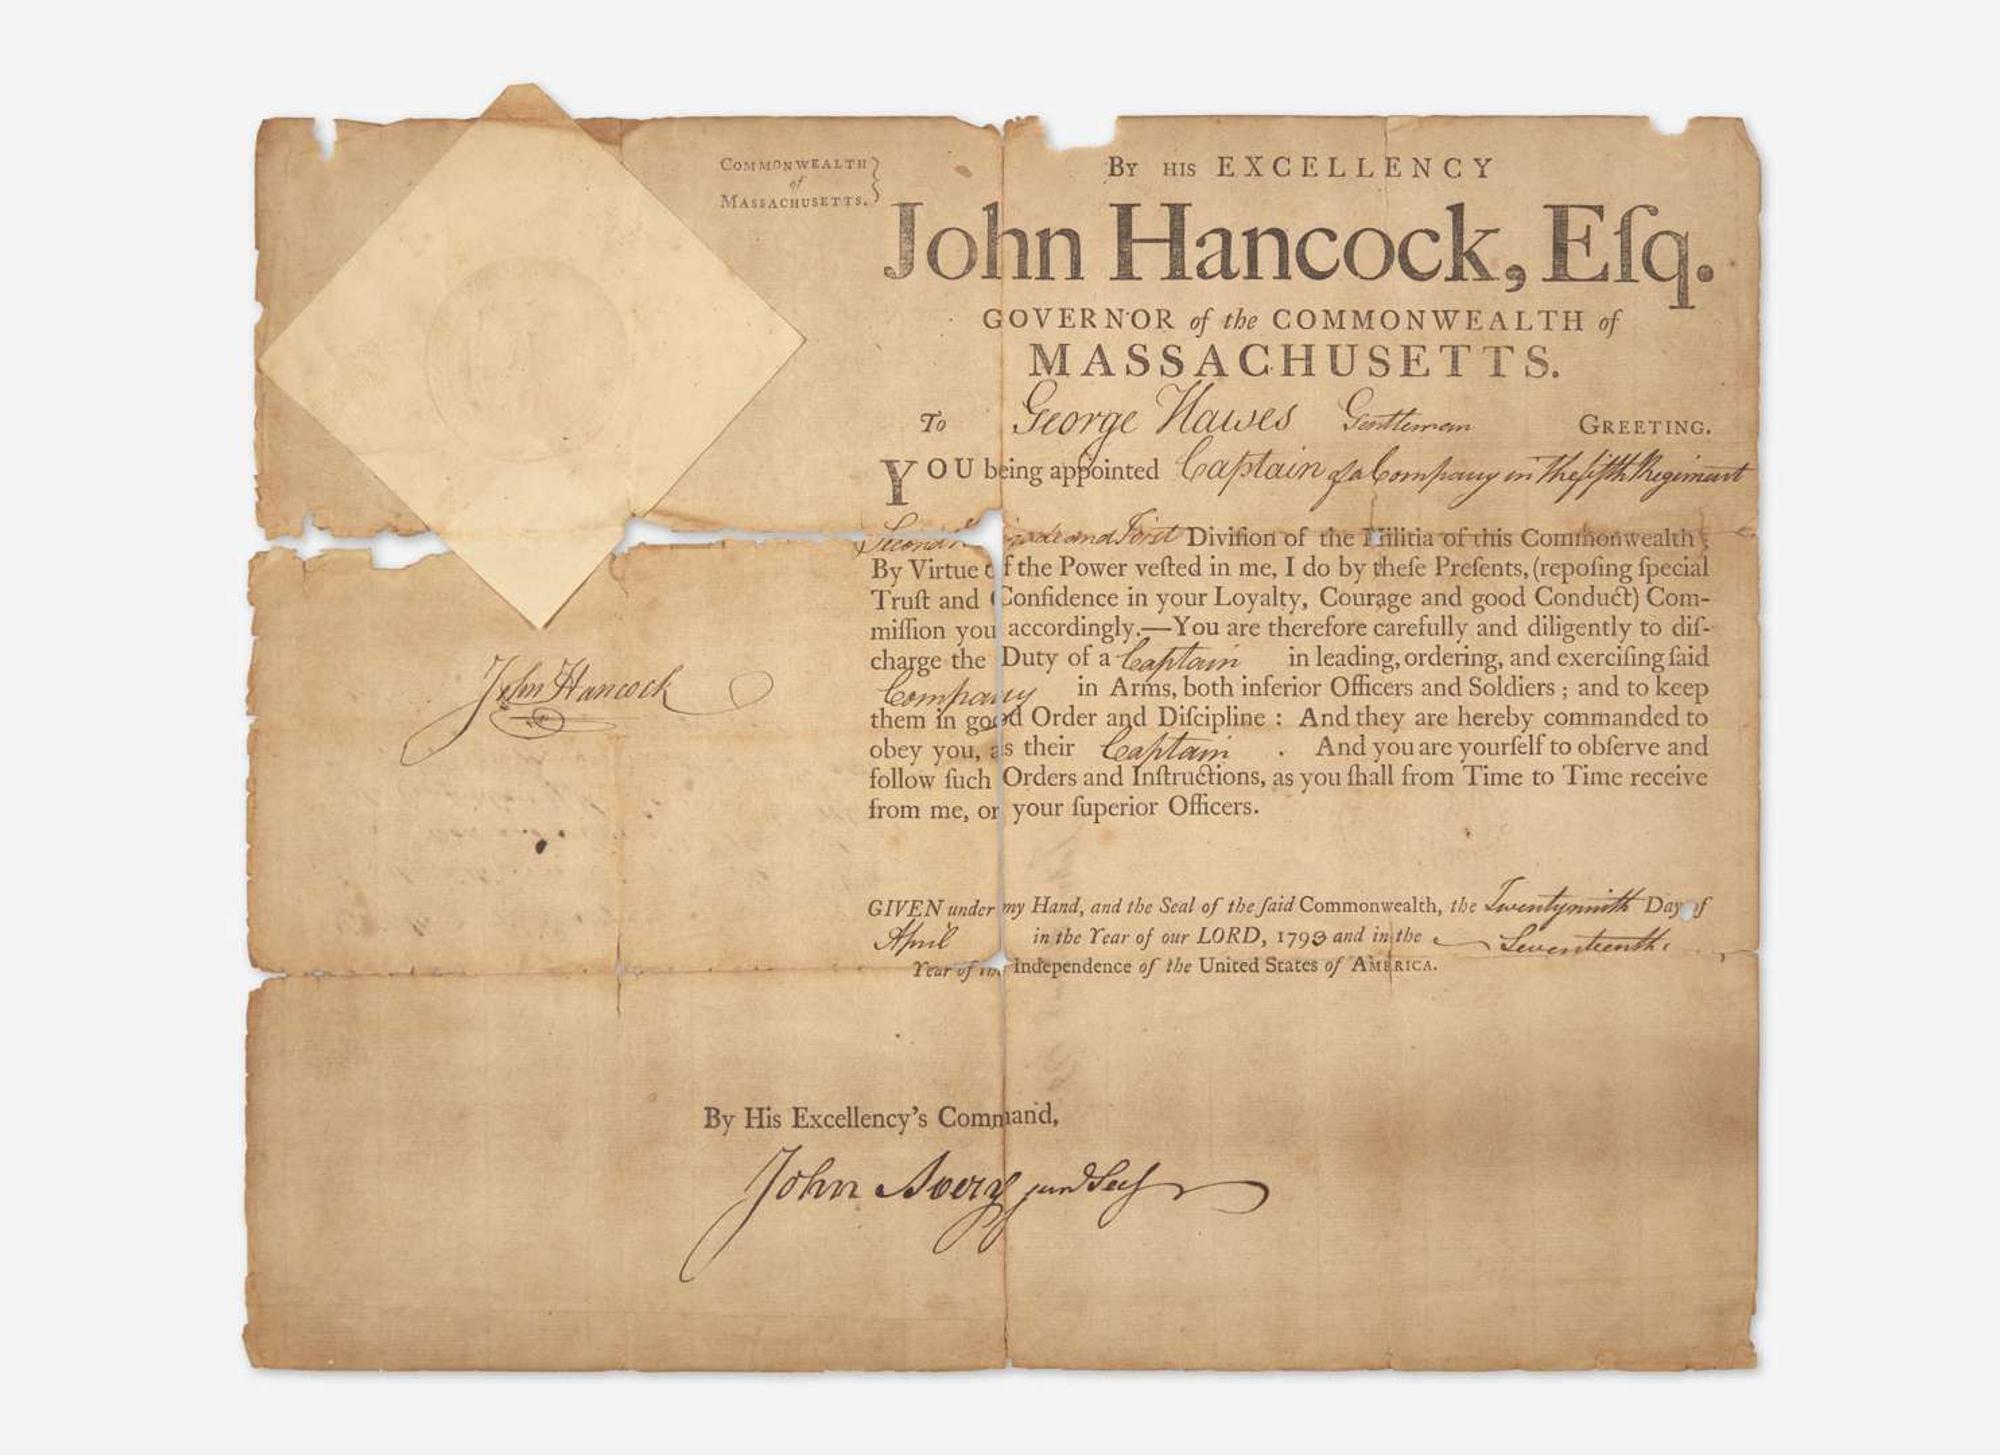 COMMONWEALTH
of
MASSACHUSETTS.
BY HIS EXCELLENCY
John Hancock, Eſq.
GOVERNOR of the COMMONWEALTH of
MASSACHUSETTS.
To George Hawes Gentleman GREETING.
YOU being appointed Captain of a Company in the fifth Regiment
Second and First Diviſion of the Militia of this Commonwealth;
By Virtue of the Power veſted in me, I do by theſe Preſents, (repoſing ſpecial
Truſt and Confidence in your Loyalty, Courage and good Conduct) Com-
miſſion you accordingly.—You are therefore carefully and diligently to diſ-
charge the Duty of a Captain in leading, ordering, and exerciſing ſaid
Company in Arms, both inferior Officers and Soldiers; and to keep
them in good Order and Diſcipline: And they are hereby commanded to
obey you, as their Captain. And you are yourſelf to obſerve and
follow ſuch Orders and Inſtructions, as you ſhall from Time to Time receive
from me, or your ſuperior Officers.
John Hancock
GIVEN under my Hand, and the Seal of the ſaid Commonwealth, the Twentyninth Day of
April in the Year of our LORD, 1793 and in the Seventeenth.
Year of the Independence of the United States of AMERICA.
By His Excellency's Command,
John Avery junr Secy